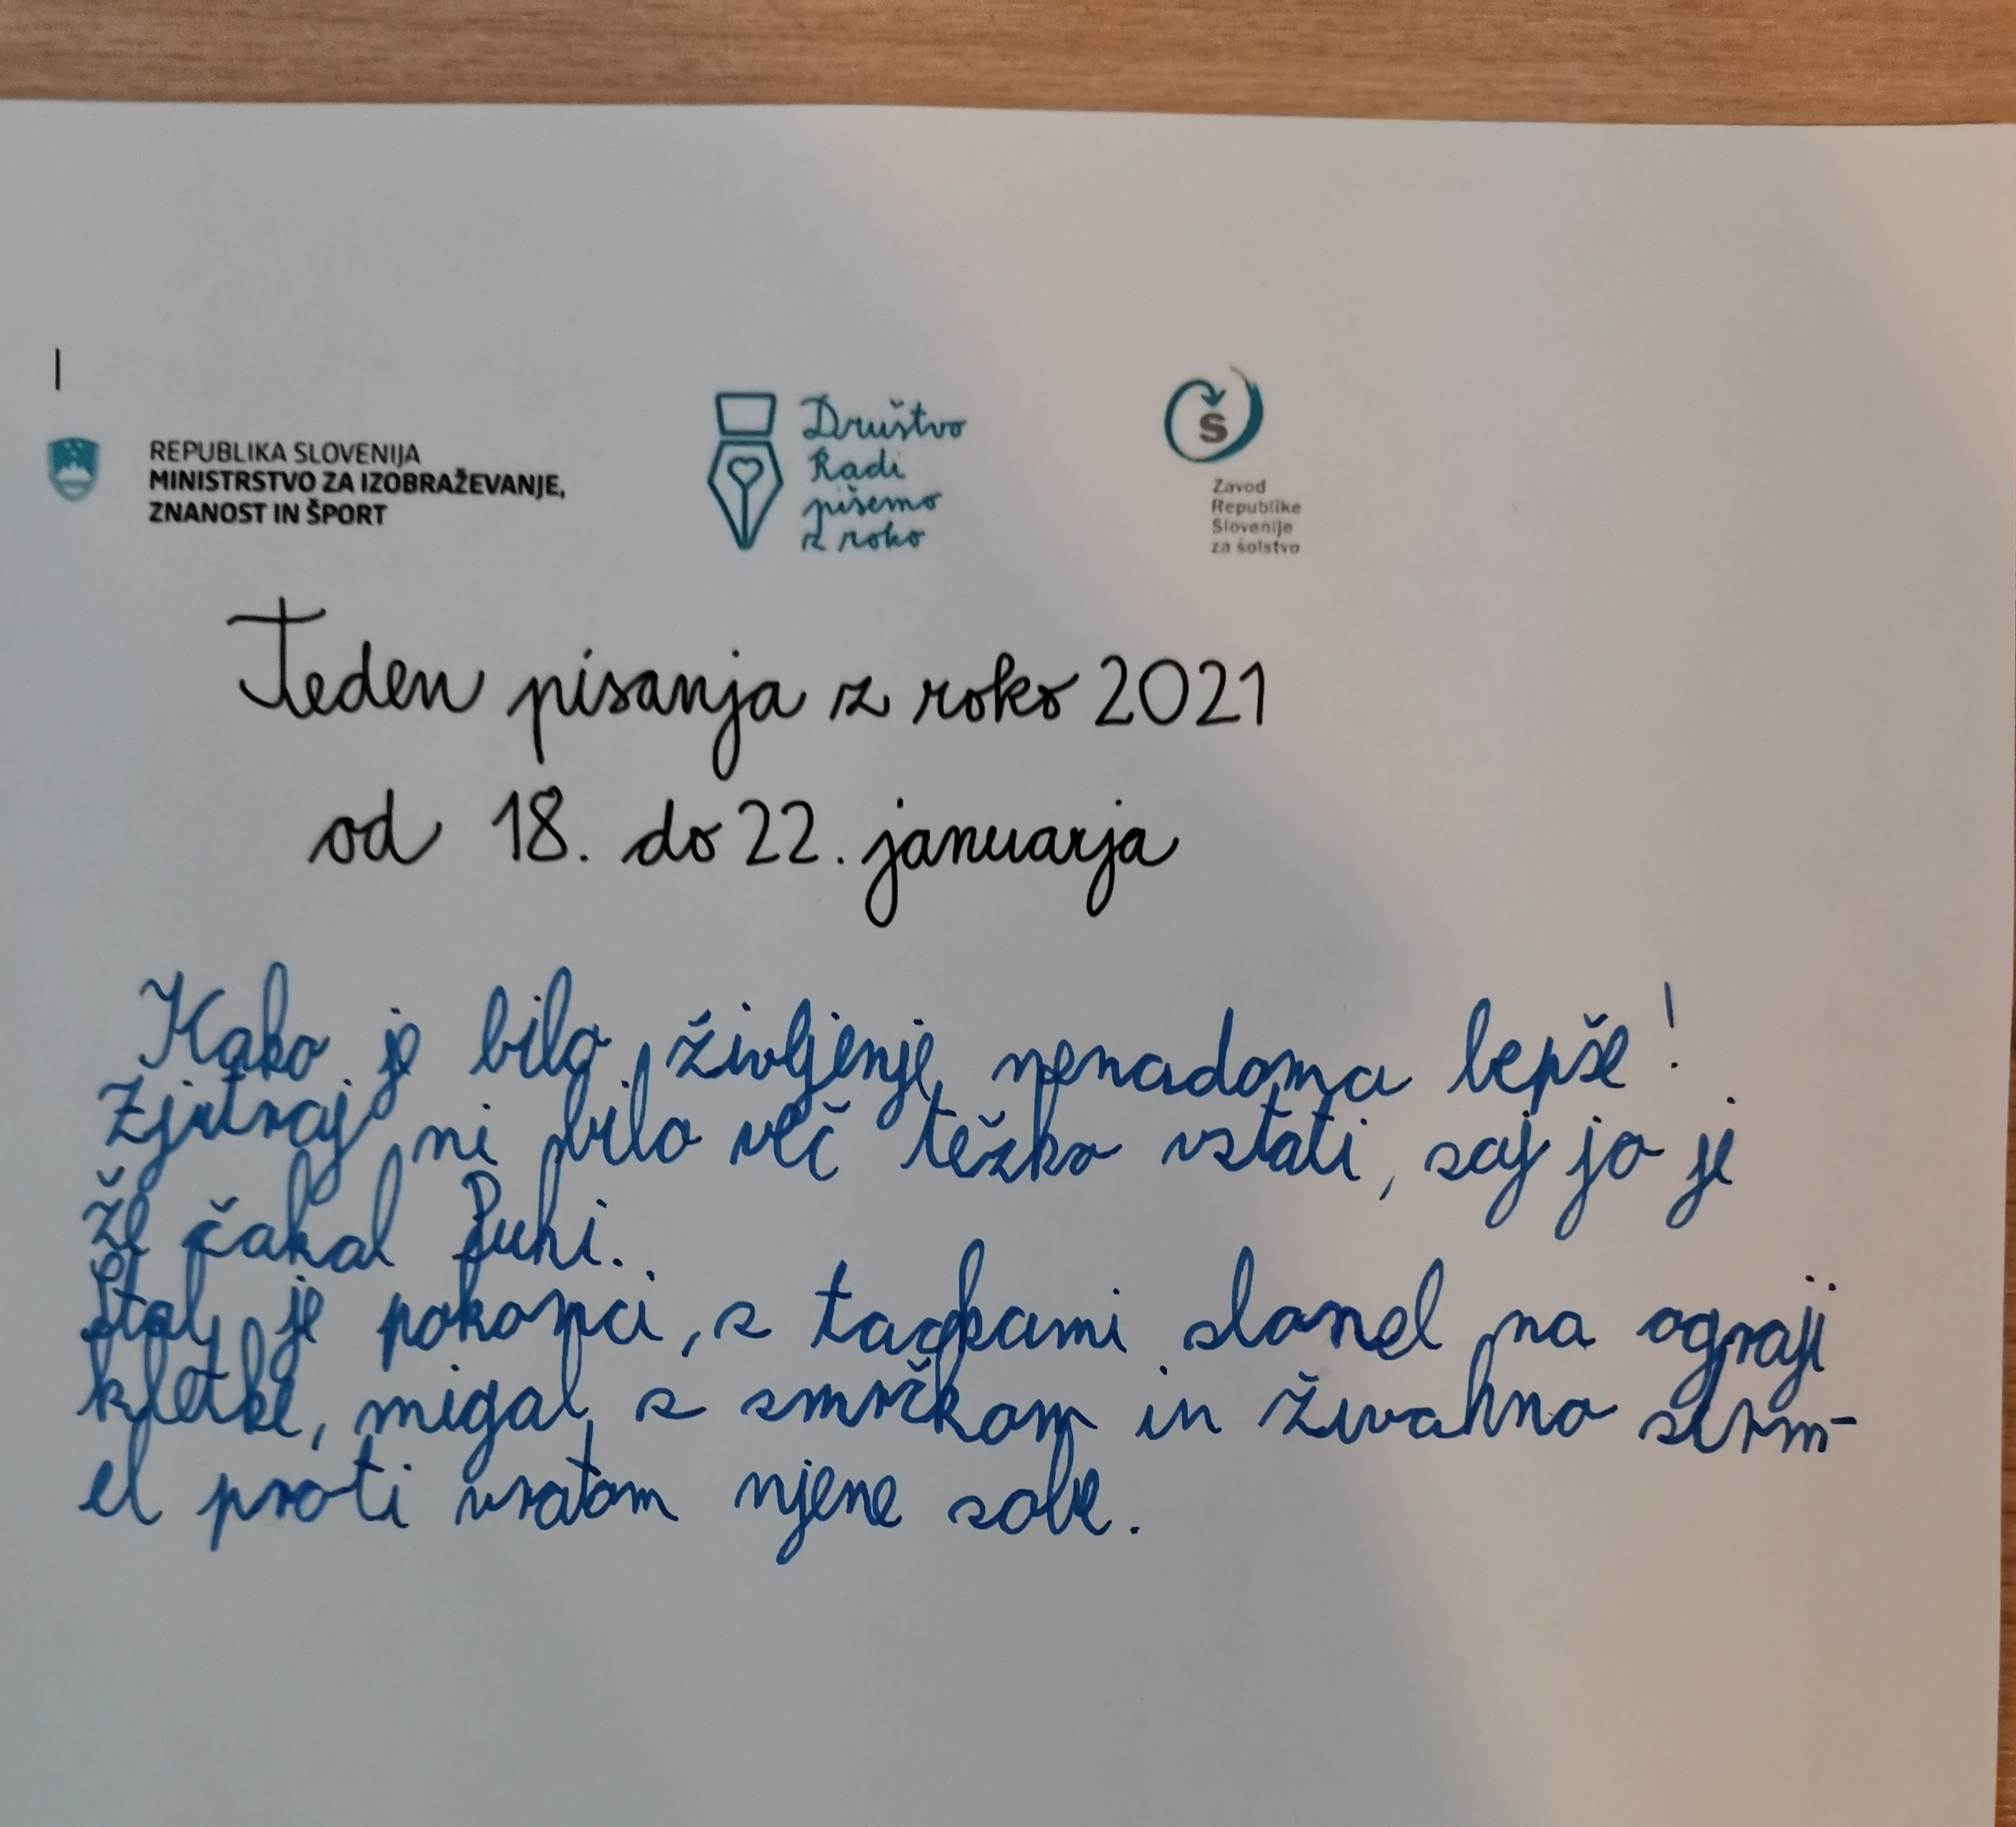 REPUBLIKA SLOVENIJA
MINISTRSTVO ZA IZOBRAŽEVANJE,
ZNANOST IN ŠPORT
Društvo
Radi
pišemo
z roko
Š
Zavod
Republike
Slovenije
za šolstvo
Teden pisanja z roko 2021
od 18. do 22. januarja
Kako je bilo življenje nenadoma lepše!
Zjutraj ni bilo več težko vstati, saj jo je
že čakal Puhi.
Stal je pokonci, s tačkami slonel na ograji
kletke, migal s smrčkom in živahno strm-
el proti vratom njene sobe.